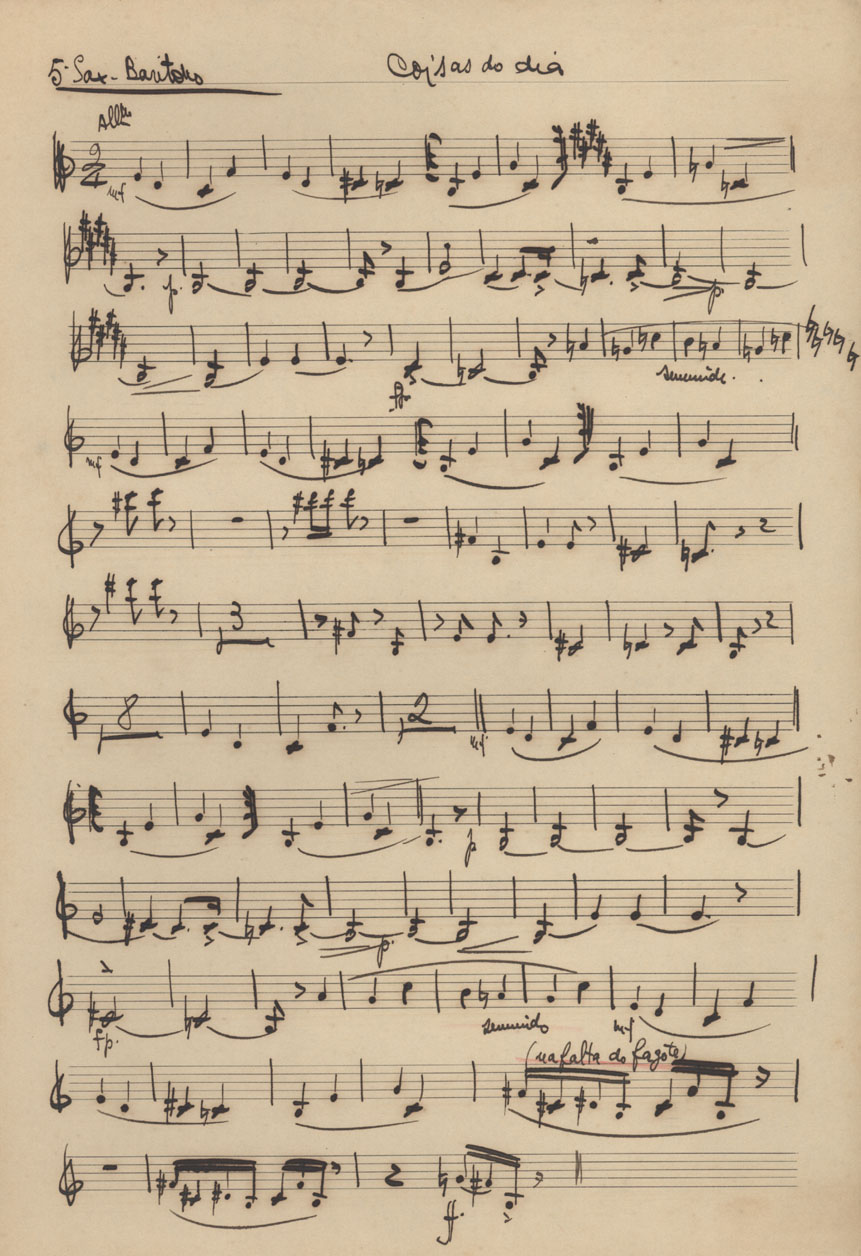 5º Sax-Baritono Coisas do dia
Allº
2
4
mf
p. p.
fp sumido.
mf
3
8 2 mf
p
p.
fp. sumido mf
(na falta do fagote)
ff.